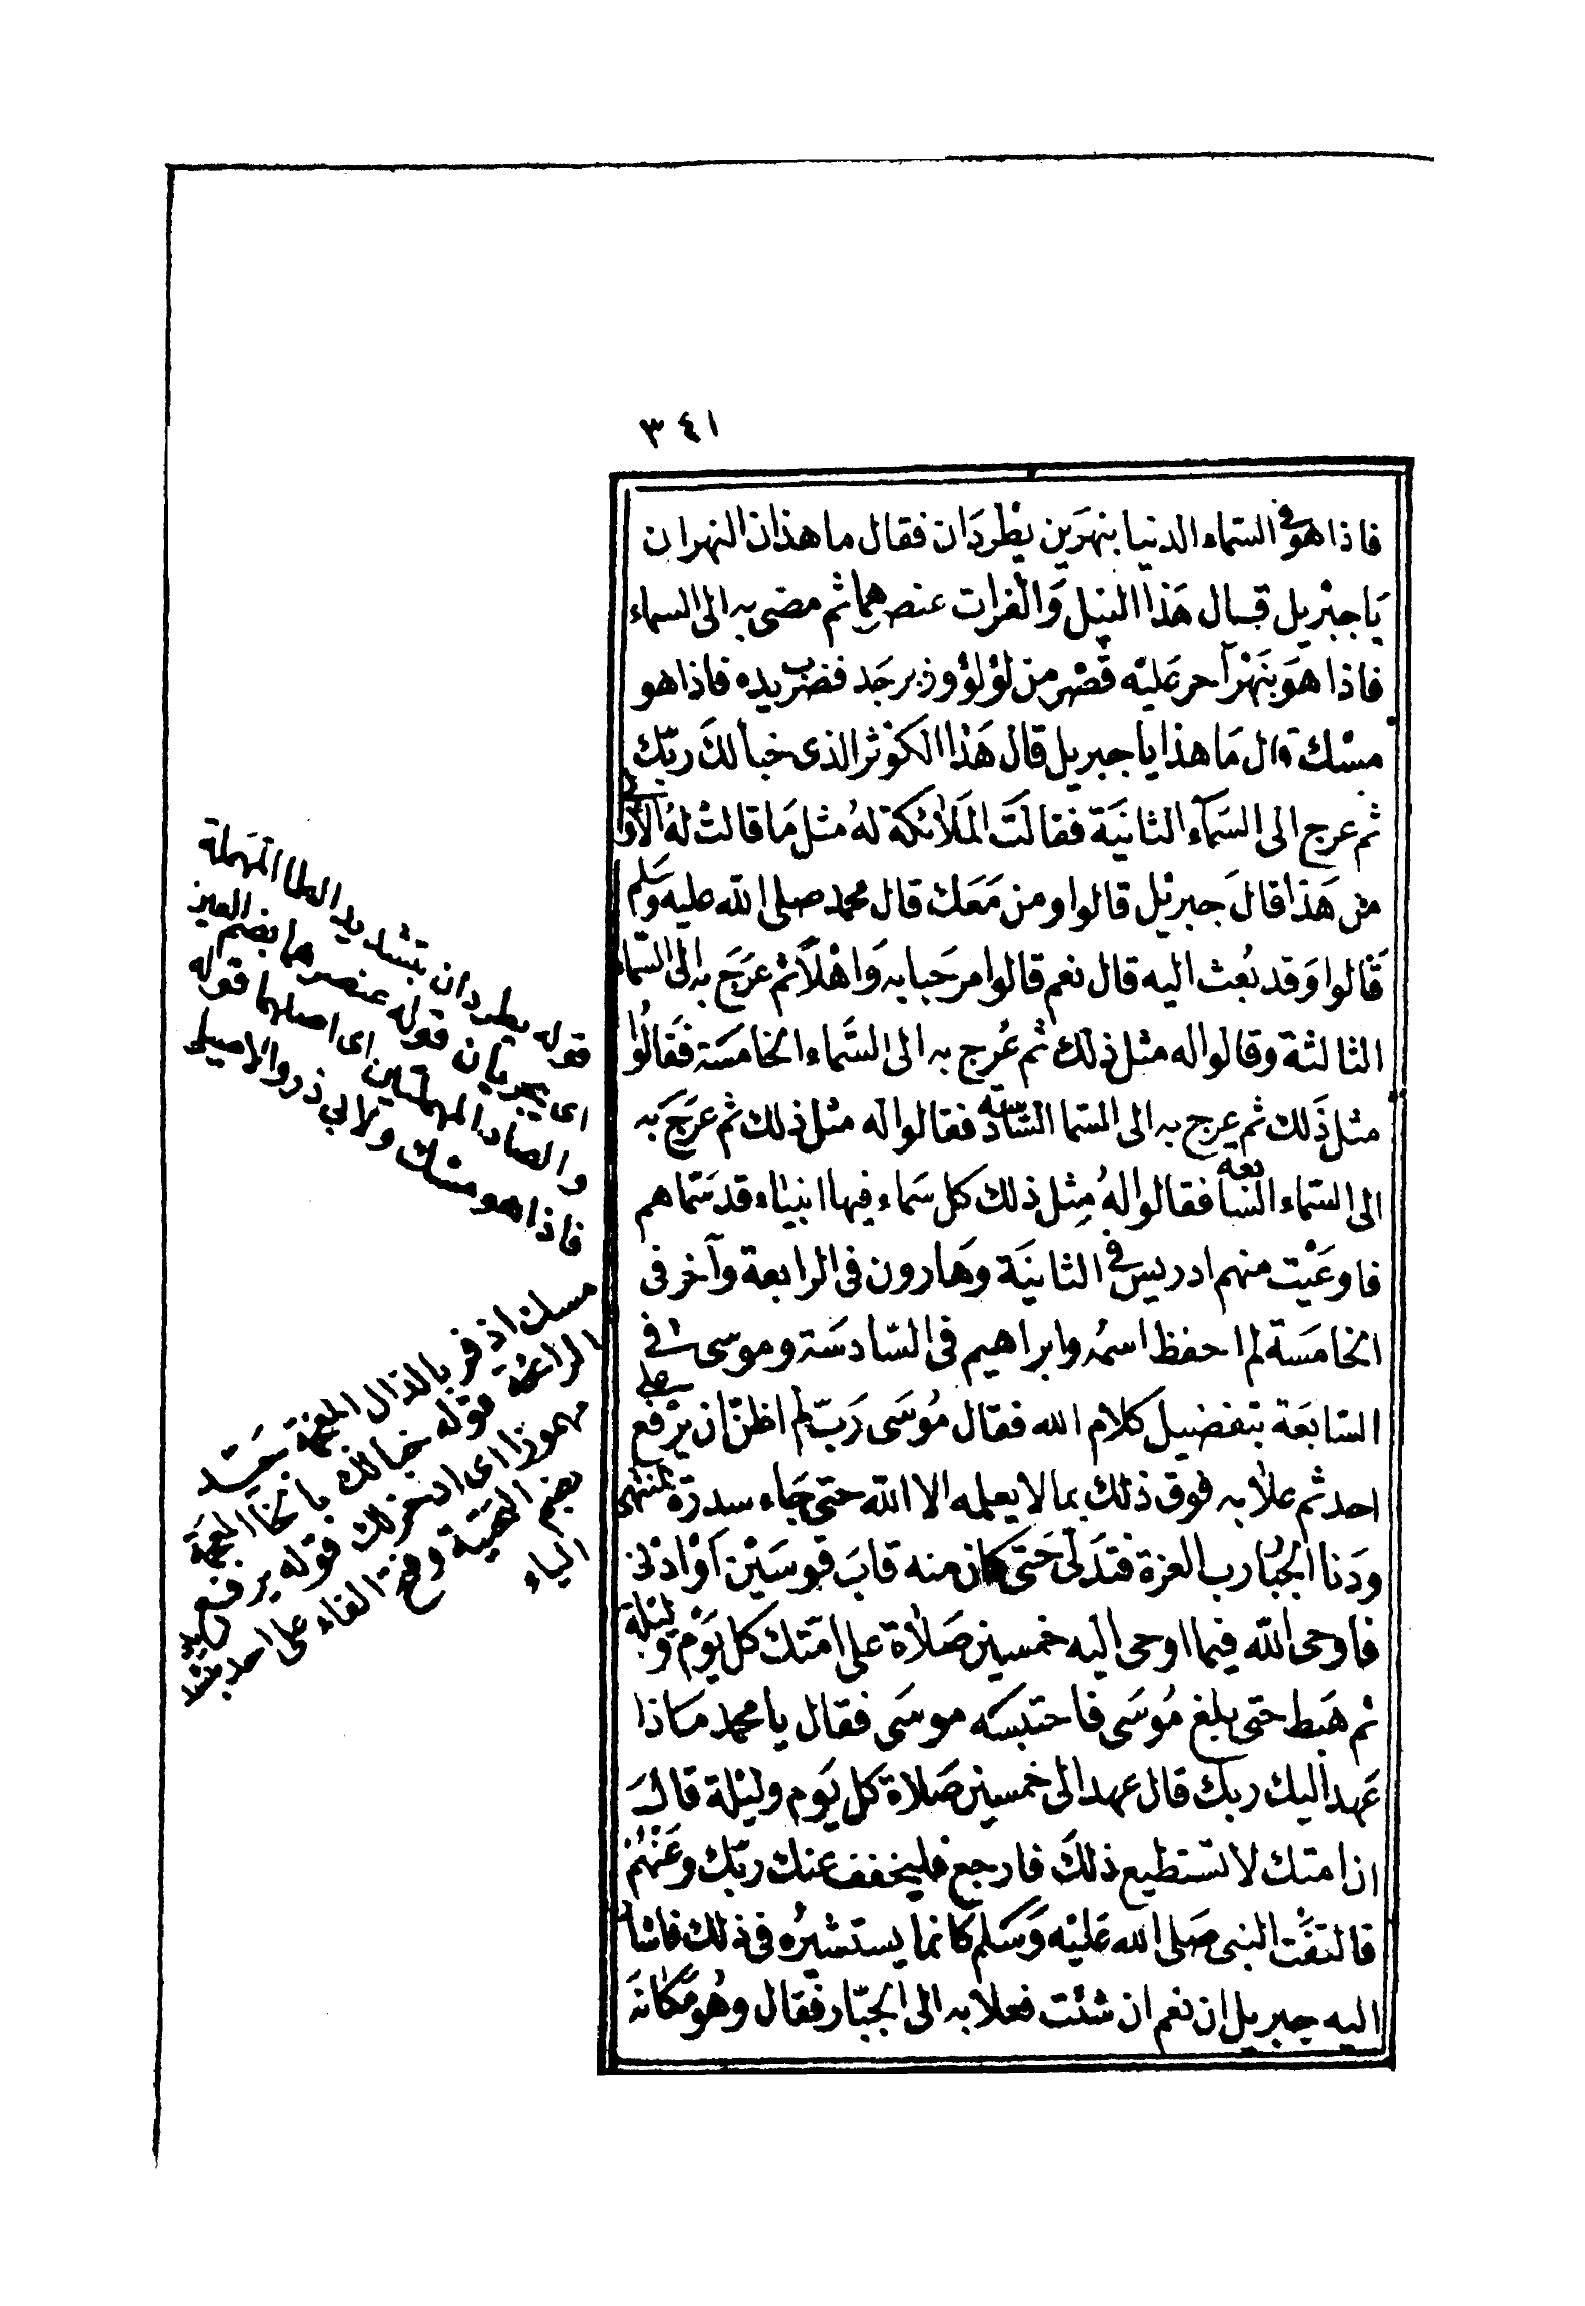 ٣٤١
فاذا هو في السّماء الدنيا بنهَرَين يطْردَان فقال ما هذان النهران
يَاجبْريل قال هَذا النيل وَالْفرات عنصرهما ثم مضى به الى السماء
فاذا هوَ بنَهْر آخر عَليْه قَصْر من لؤلؤ وزبرجَد فضرَب يده فاذا هو
مسْك قال مَا هذا يا جبريل قال هَذا الكوْثر الذى خبأ لكَ ربّك
ثم عرج الى السَّمآء الثانيَة فقالَت المَلَائكة لهُ مثل مَا قالتْ لهُ الأولى
من هَذا قالَ جبريْل قالوا ومن مَعَك قال محمد صلى الله عليه وَسَلم
قَالوا وَقد بُعث اليه قال نعم قالوا مرحَبا به وَاهْلاً ثم عرَجَ به الى السّماء
الثالثة وقالوا له مثل ذلك ثم عُرج به الى السَّماء الخامسَة فقَالُوا
مثل ذَلك ثم عرج به الى السّما السّادسة فقالوا له مثل ذلك ثم عرَجَ به
الى السّماء السّابعه فقالوا لهُ مِثل ذلك كل سَماء فيها انبيَاء قد سَمّاهم
فاوعَيْت منهم ادريس في الثانيَة وهَارون فى الرابعة وآخر فى
الخامسَة لم احفظ اسمُه وابراهيم فى السّادسَة وموسى في
السّابعَة بتفضيل كلام الله فقال مُوسَى رَبّ لم اظنّ ان يرْفع على
احد ثم علَا به فوق ذلك بما لا يعلمه الا الله حتى جَاء سدرَة المنتهى
ودَنا الجبّار رب العزة فتدَلى حَتى كان منه قابَ قوسَيْن اَوْ ادْنى
فاوحى الله فيما اوحى اليه خمسين صَلاة على امّتك كل يَوْم وليْلة
ثم هَبط حتى بلغ مُوسَى فاحتبسَه موسَى فقال يا محمد مَاذا
عَهد اليك ربك قال عهد الى خمسين صَلاة كل يَوم وليْلة قالَ
ان امتك لا تسْتطيع ذلكَ فارجع فليخفف عنك ربّك وعَنْهُمْ
فالتفَت النبى صَلى الله عَليْه وَسَلم كانما يستشيرُه فى ذلك فاشار
اليه جبريل ان نعم ان شئت فعلا به الى الجبّار فقال وهُو مَكانه
قوله يطردان بتشديد الطا المهمَلة
اى يجريان قوله عنصرهما بضم العين
والصاد المهملتين اى اصلهما قوله
فاذا هو مسْك ولابي ذر والاصيلى
مسك اذفر بالذال المعجمة جَيّد
الرائحة قوله خبا لك بالخا المعجمَة
مهموزا اى ادخر لك قوله يرفع
بضم التحتيّة وفتح الفاء على احد بتشديد
الياء